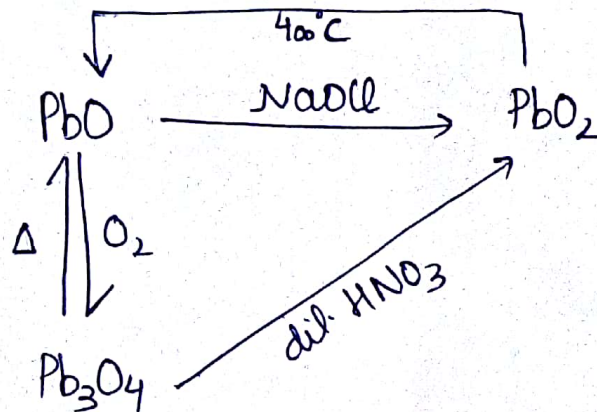 400°C
PbO NaOCl PbO₂
Δ O₂
dil. HNO₃
Pb₃O₄